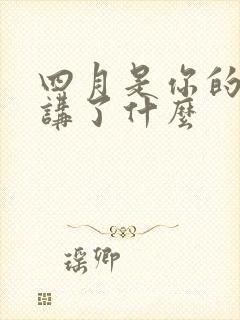 四月是你的
講了什麼
瑶卿